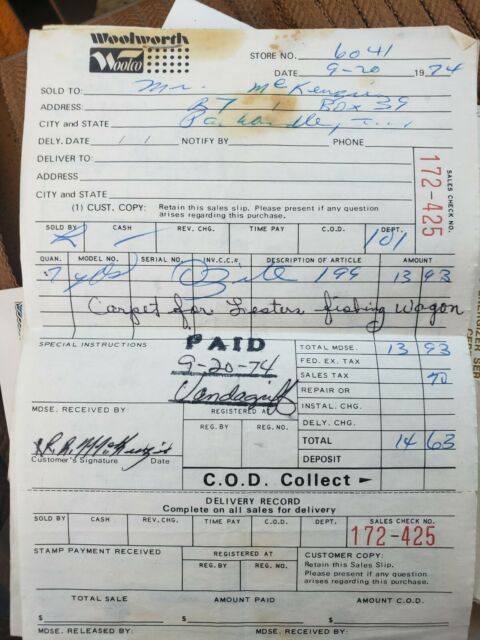 Woolworth
Woolco
STORE NO. 6041
DATE 9-20 1974
SOLD TO: Mr. McKenzie
ADDRESS: RT 1 Box 39
CITY AND STATE
DELY. DATE / / NOTIFY BY PHONE
DELIVER TO:
ADDRESS
CITY AND STATE
(1) CUST. COPY: Retain this sales slip. Please present if any question arises regarding this purchase.
SALES CHECK NO. 172-425
SOLD BY CASH REV. CHG. TIME PAY C.O.D. DEPT.
101
QUAN. MODEL NO. SERIAL NO. INV.C.C.# DESCRIPTION OF ARTICLE AMOUNT
7 yds 199 13 93
Carpet for Lesters fishing Wagon
SPECIAL INSTRUCTIONS
PAID
9-20-74
Vandagriff
TOTAL MDSE. 13 93
FED. EX. TAX
SALES TAX 70
REPAIR OR
INSTAL. CHG.
DELY. CHG.
TOTAL 14 63
DEPOSIT
REGISTERED AT
REG. BY REG. NO.
MDSE. RECEIVED BY:
Customer's Signature Date
C.O.D. Collect
DELIVERY RECORD
Complete on all sales for delivery
SOLD BY CASH REV. CHG. TIME PAY C.O.D. DEPT. SALES CHECK NO.
172-425
STAMP PAYMENT RECEIVED
REGISTERED AT
REG. BY REG. NO.
CUSTOMER COPY:
Retain this Sales Slip.
Please present if any question
arises regarding this purchase.
TOTAL SALE AMOUNT PAID AMOUNT C.O.D.
$ $ $
MDSE. RELEASED BY: MDSE. RECEIVED BY: